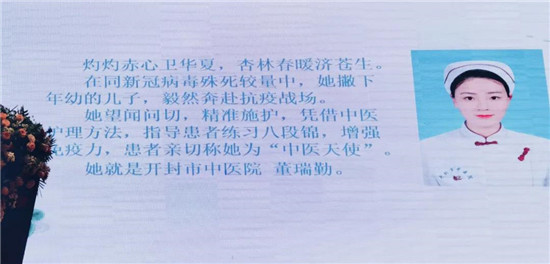 灼灼赤心卫华夏，杏林春暖济苍生。
在同新冠病毒殊死较量中，她撇下
年幼的儿子，毅然奔赴抗疫战场。
她望闻问切，精准施护，凭借中医
护理方法，指导患者练习八段锦，增强
免疫力，患者亲切称她为“中医天使”。
她就是开封市中医院 董瑞勤。